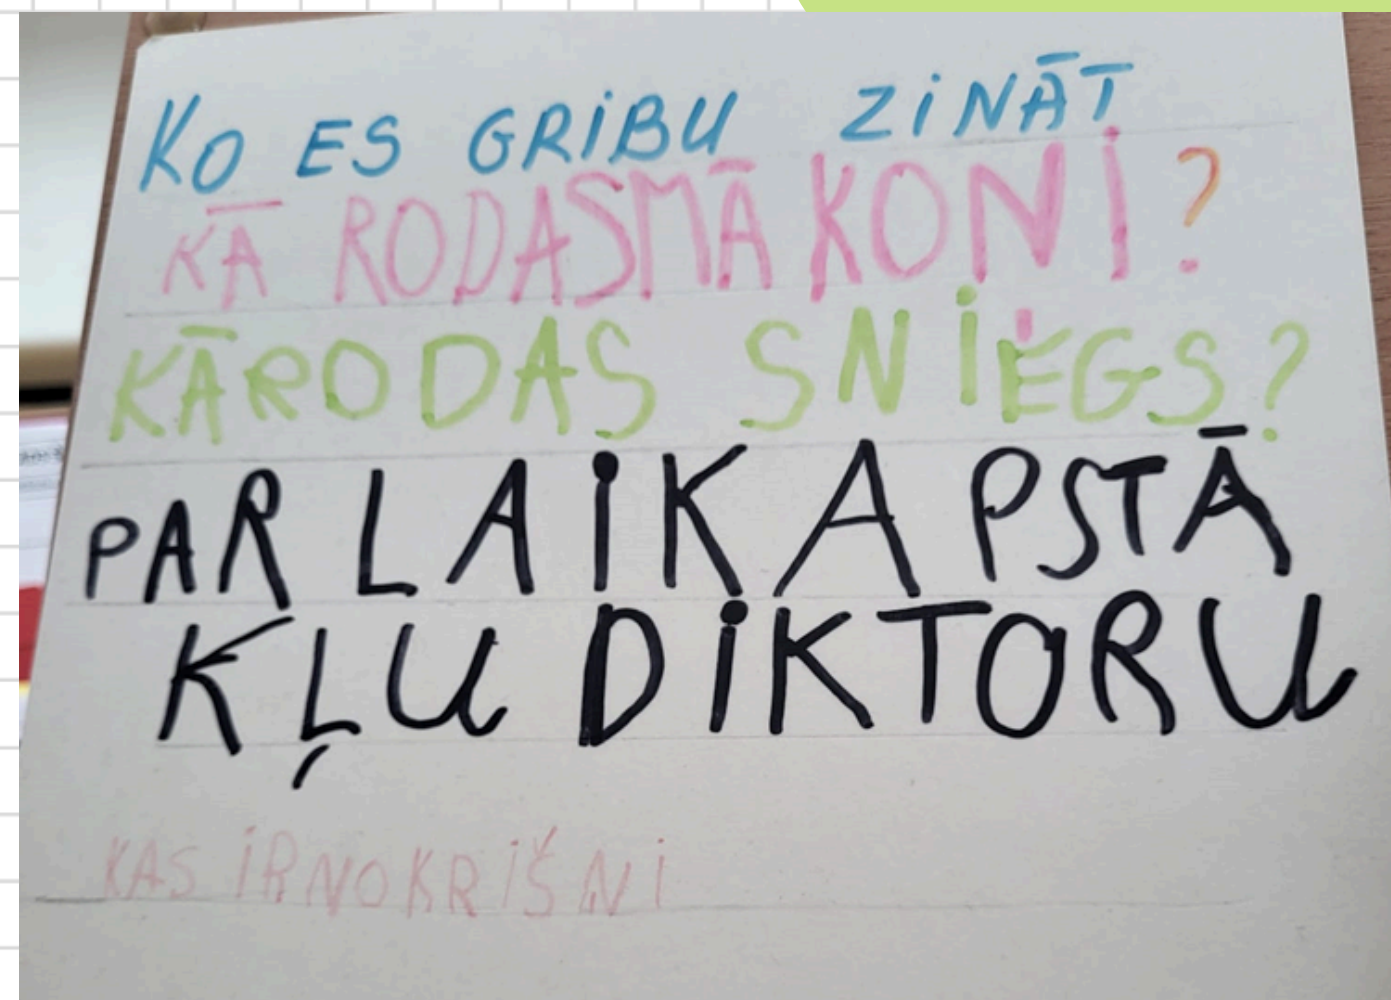 KO ES GRIBU ZINĀT
KĀ RODASMĀKONI?
KĀRODAS SNIEGS?
PAR LAIKAPSTĀ
KĻU DIKTORU
KAS IR NOKRIŠNI